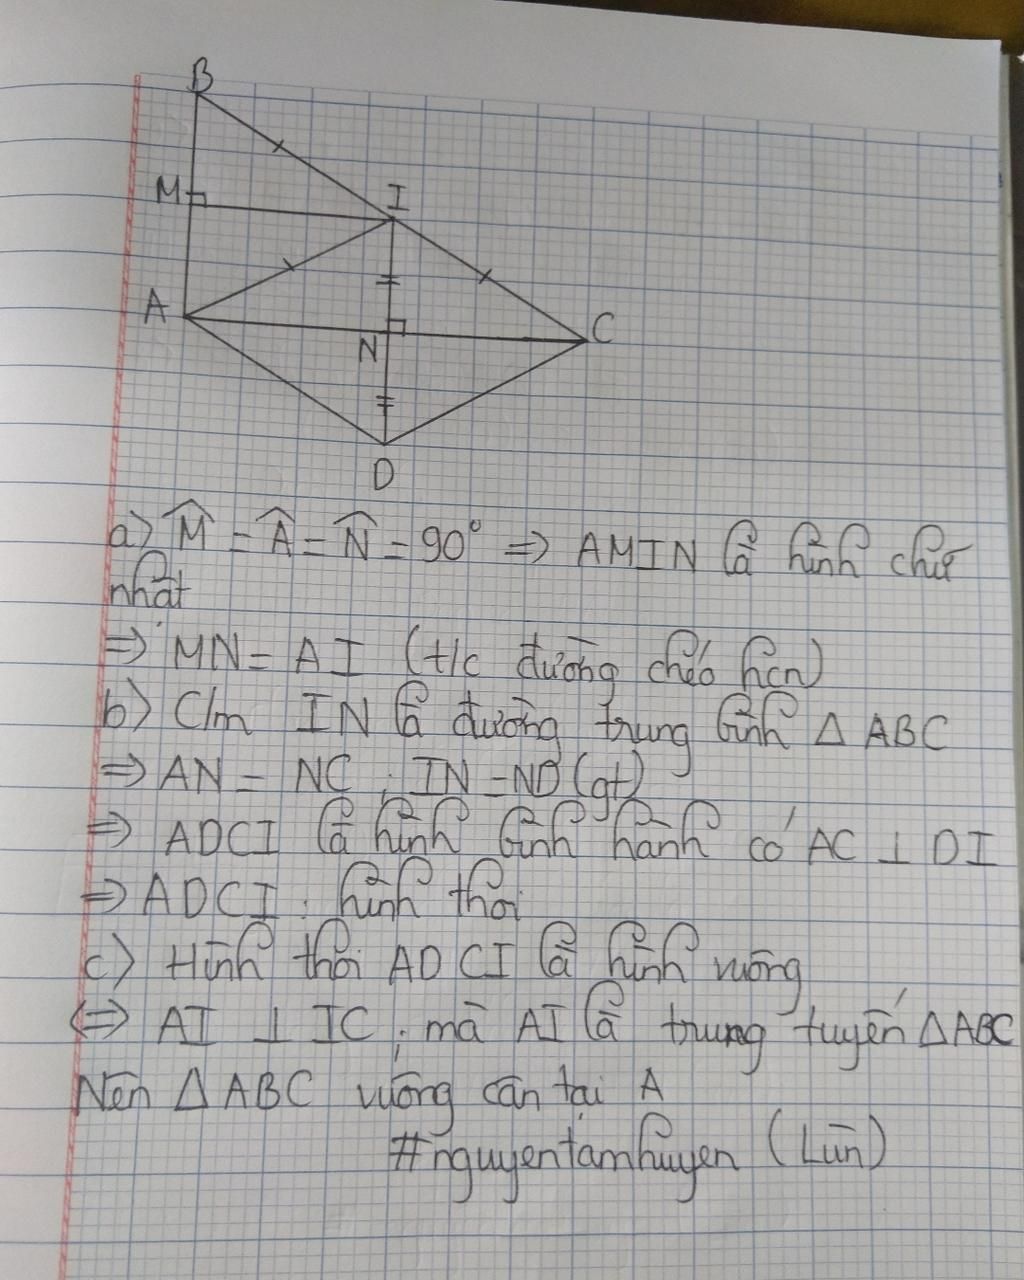 B
M
I
A
N
C
D
a) M̂ = Â = N̂ = 90° => AMIN là hình chữ
nhật
=> MN = AI (t/c đường chéo hcn)
b) C/m IN là đường trung bình Δ ABC
=> AN = NC ; IN = ND (gt)
=> ADCI là hình bình hành có AC ⊥ DI
=> ADCI : hình thoi
c) Hình thoi ADCI là hình vuông
<=> AI ⊥ IC ; mà AI là trung tuyến Δ ABC
Nên Δ ABC vuông cân tại A
#nguyentamhuyen (Lùn)